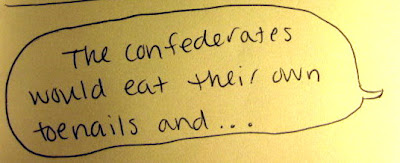 The confederates
would eat their own
toenails and...